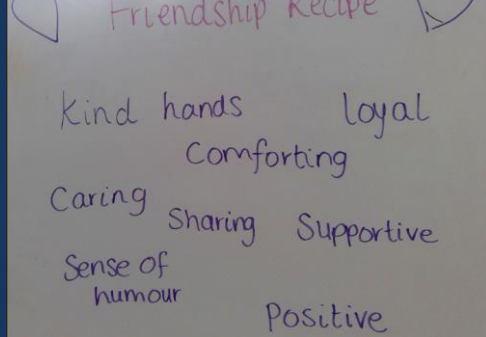 Friendship Recipe
Kind hands
loyal
Comforting
Caring
Sharing
Supportive
Sense of
humour
Positive